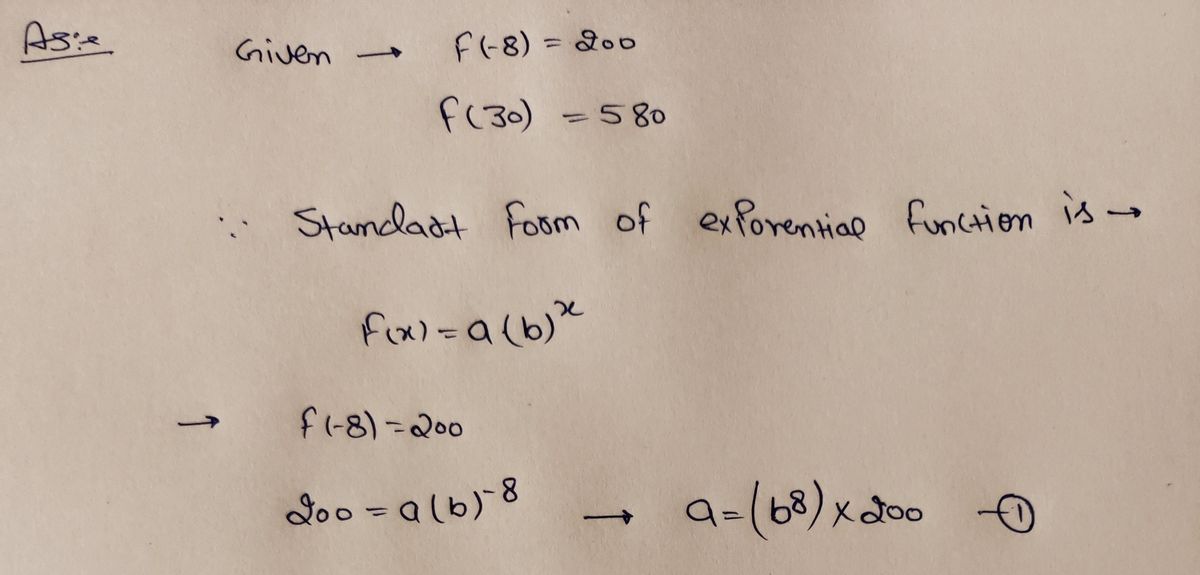 As:-
Given → f(-8) = 200
f(30) = 580
∴ Standart Form of exponential function is →
f(x) = a(b)ˣ
→ f(-8) = 200
200 = a(b)⁻⁸ → a = (b⁸) × 200 —①